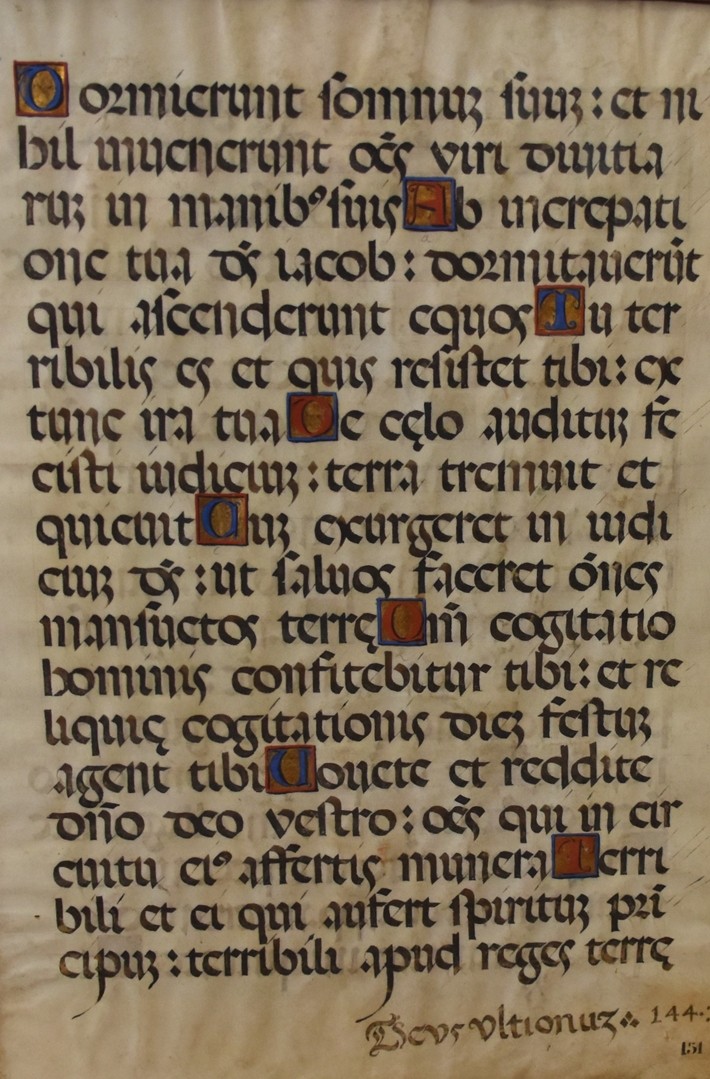 Dormierunt somnuꝫ suuꝫ : et ni
hil inuenerunt oēs viri diuitia
ruꝫ in manibꝰ suis Ab increpati
one tua dʒ̄ iacob : dormitauerūt
qui ascenderunt equos Tu ter
ribilis es et quis resistet tibi : ex
tunc ira tua De cęlo audituꝫ fe
cisti iudiciuꝫ : terra tremuit et
quieuit Cuꝫ exurgeret in iudi
ciuꝫ dʒ̄ : ut saluos faceret ōnes
mansuetos terrę Om̄ cogitatio
hominis confitebitur tibi : et re
liquię cogitationis dieꝫ festuꝫ
agent tibi Uouete et reddite
dn̄o deo vestro : oēs qui in cir
cuitu eiꝰ affertis munera Terri
bili et ei qui aufert spirituꝫ pri
cipuꝫ : terribili apud reges terrę
Deus ultionuꝫ 144.
151